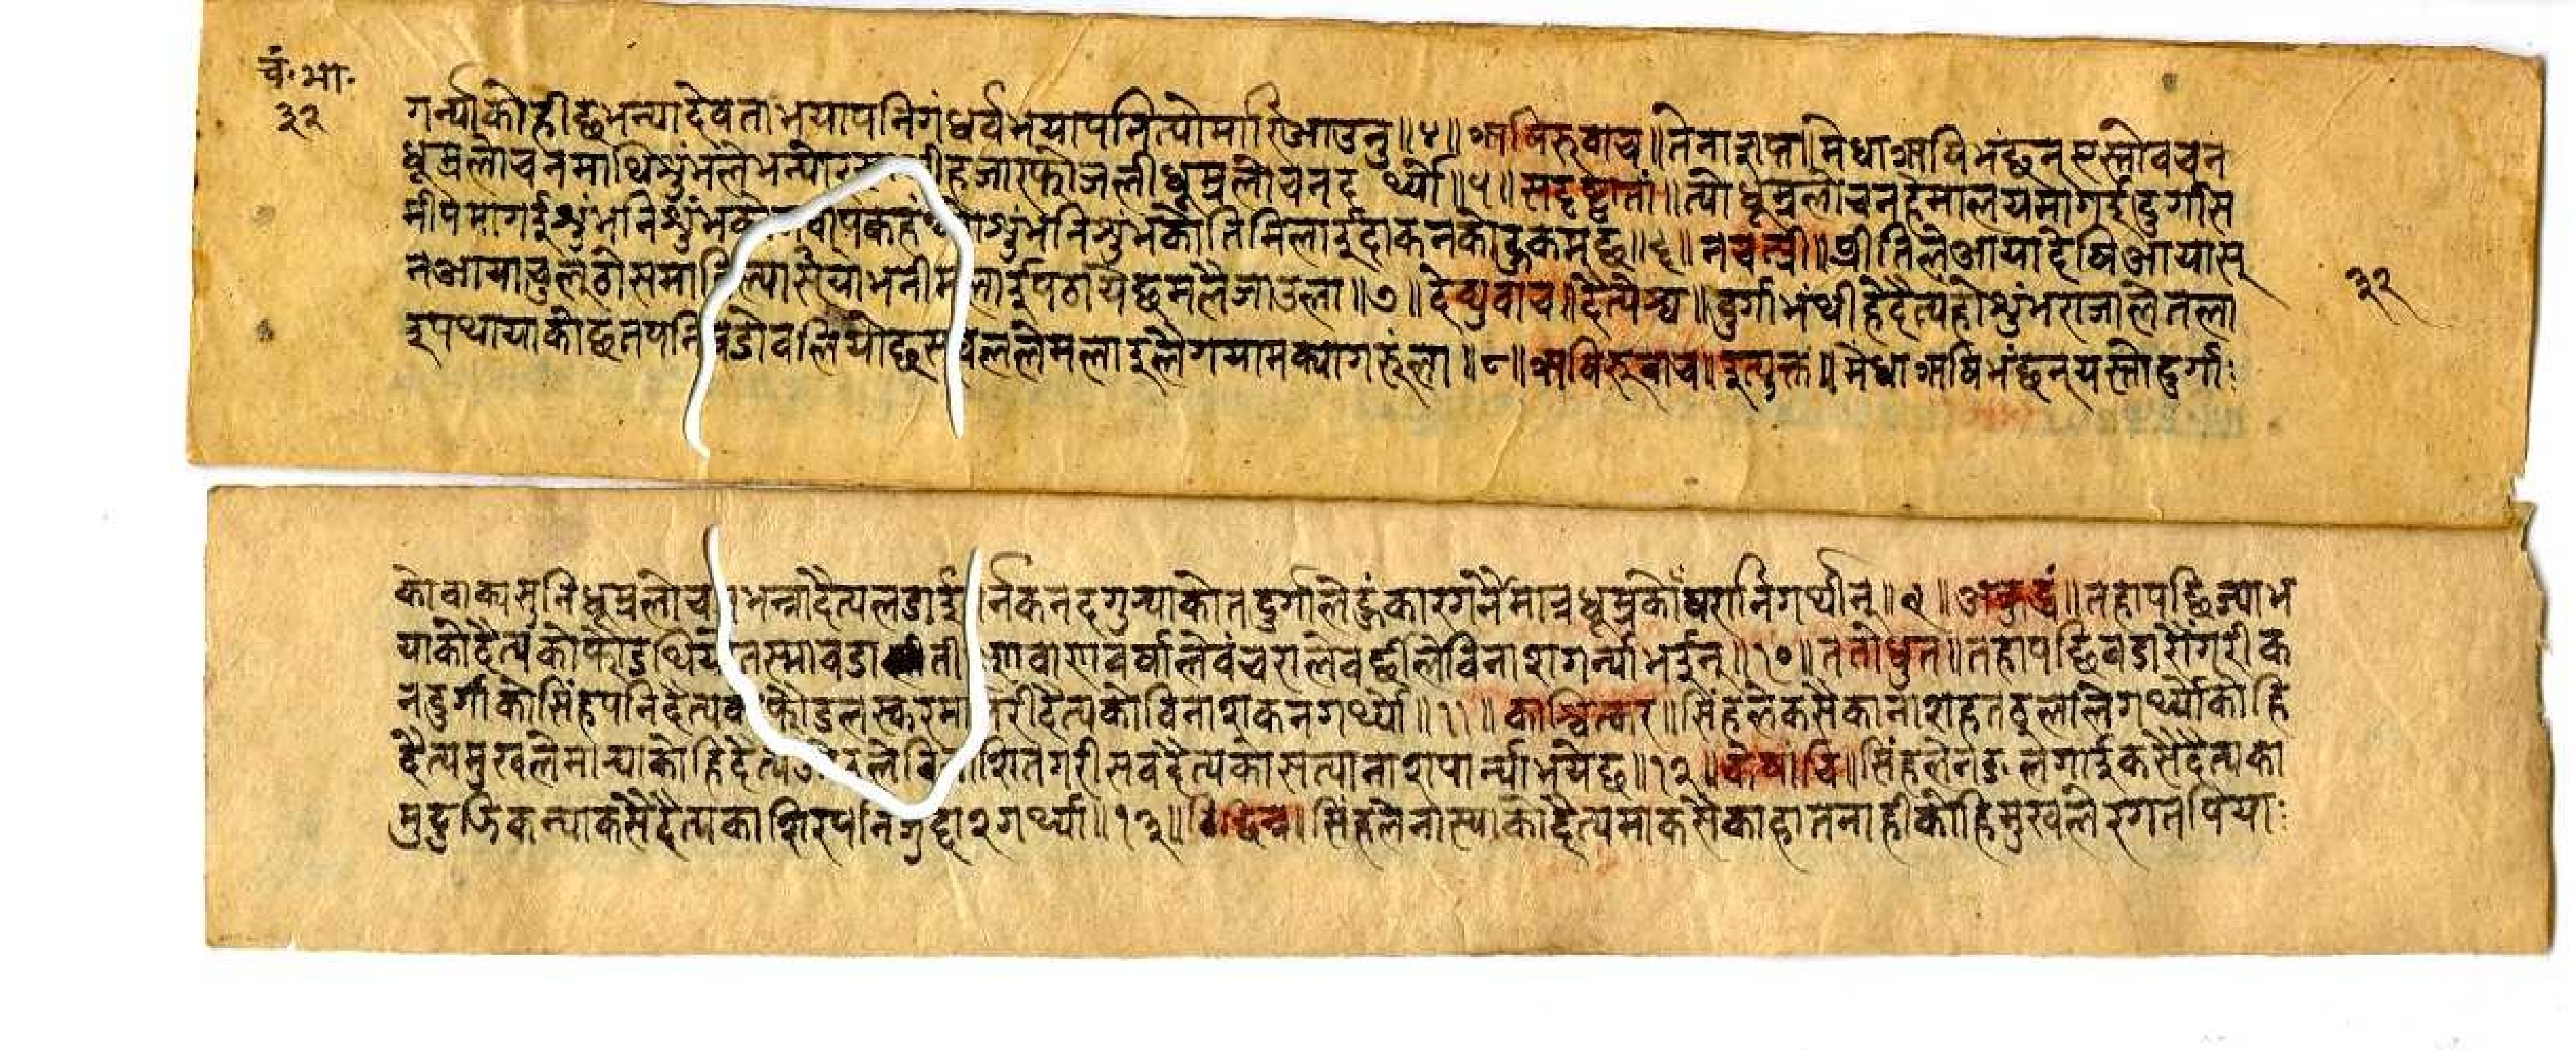 चं.भा.
३२
गर्न्याकोही छ भन्या देवता भयापनि गंधर्व भयापनि त्यो मारि आउनु ॥४॥ ऋषिरुवाच ॥ तेनाज्ञप्त ॥ मेधाऋषि भंछन् एस्तो वचन
धूम्रलोचनमाथि शुंभले भन्यो हजार फौजली धूम्रलोचन द र्थ्यो ॥५॥ सदृष्ट्वातां ॥ त्यो धूम्रलोचन हेमालयमा गई दुर्गास
मीपमा गई शुंभनिशुंभ शुंभनिशुंभको तिमिलाई दाकनको हुकम् छ ॥६॥ नचेत्प्री ॥ प्रीतिले आया देषि आयास्
न आया चुलठो समाति मलाई पठायेछ म लैजाउला ॥७॥ देव्युवाच ॥ दैत्येश्व ॥ दुर्गा भंथी हे दैत्य हो शुंभराजाले तला
३२
इ पथायाको छ त पनि बडो वलियो छस् वलले मलाइ लैगया म क्या गरुंला ॥८॥ ऋषिरुवाच ॥ इत्युक्त ॥ मेधाऋषि भंछन् यस्तो दुर्गा
को वाक्य सुनि धूम्रलोचन भन्ना दैत्य लडाई र्न कन दगुन्याको त दुर्गाले हुंकार गर्नै मात्र धूम्रको षरानि गर्थीन् ॥९॥ अथक्रुद्धं ॥ तहा पछि ज्या भ
याको दैत्यको फौड थियो तस्मा वडा वर्षाले वंचराले वर्छीले विनाश गर्न्या भईन् ॥१०॥ ततोधुत ॥ तहा पछि वडा रोंग्री क
न दुर्गाको सिंह पनि दैत्यको फौड लस्करमा री दैत्यको विनाश कन गर्थ्यो ॥११॥ कांश्चित्कर ॥ सिंहले कसैका नाश हातठुलाले गर्थ्यो कोहि
दैत्य मुखले मार्न्या कोहि दैत्य विनाशित गरी सव दैत्यको सत्यानाश पार्न्या भयेछ ॥१२॥ केषांचि ॥ सिंहले नङ्ग्रा लगाई कसै दैत्यका
मुटु झिकन्या कसै दैत्यका शिर पनि गर्थ्या ॥१३॥ विछिन्न ॥ सिंहले नास्याको दैत्यमा कसैका हात नाही कोहि मुखले रगत पिया